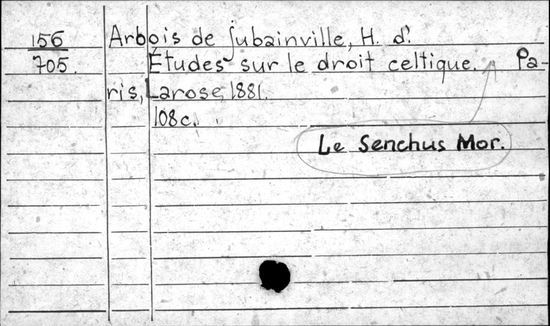 156 Arbois de Jubainville, H. d'.
705. Études sur le droit celtique. Pa-
ris, Larose, 1881.
108 c.
Le Senchus Mor.